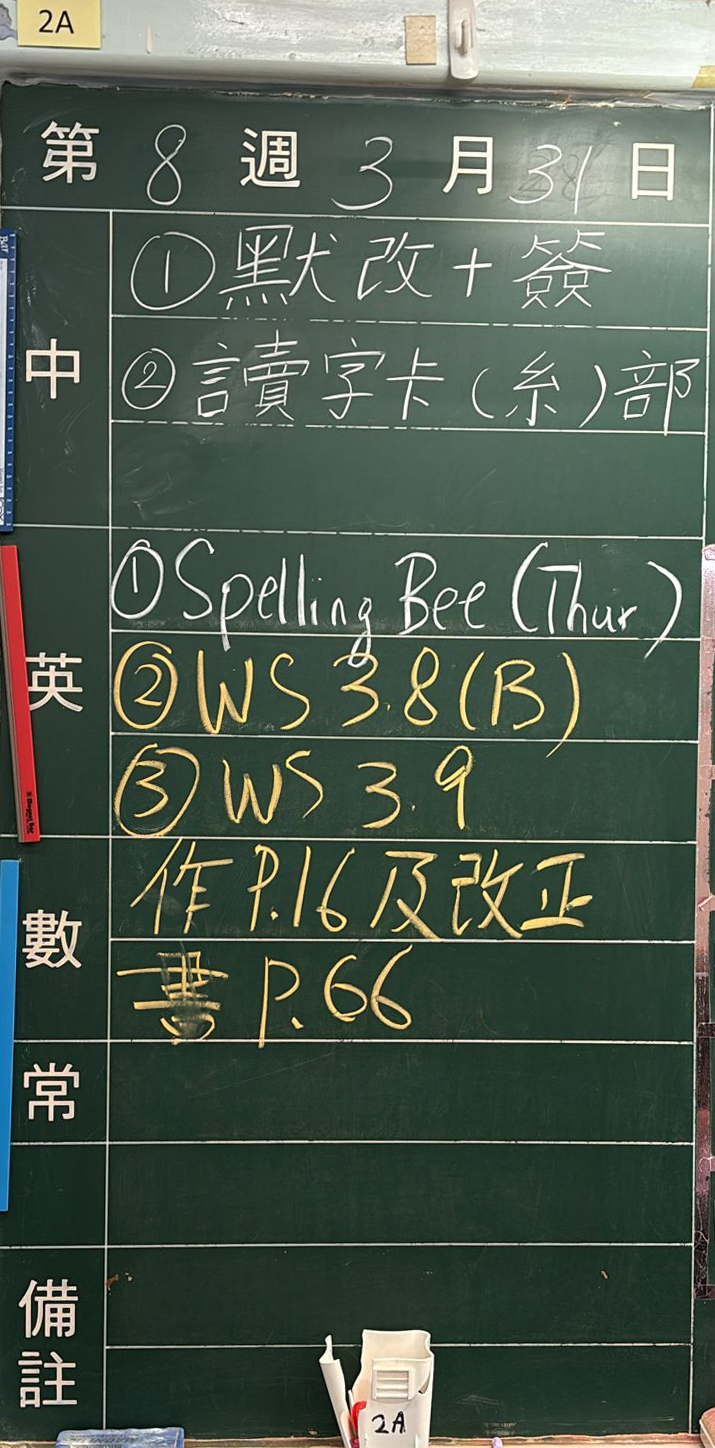 2A
第 8 週 3 月 31 日
中
①默改+簽
②讀字卡(糸)部
英
①Spelling Bee (Thur)
②WS 3.8(B)
③WS 3.9
數
作 P.16及改正
書 P.66
常
備註
2A